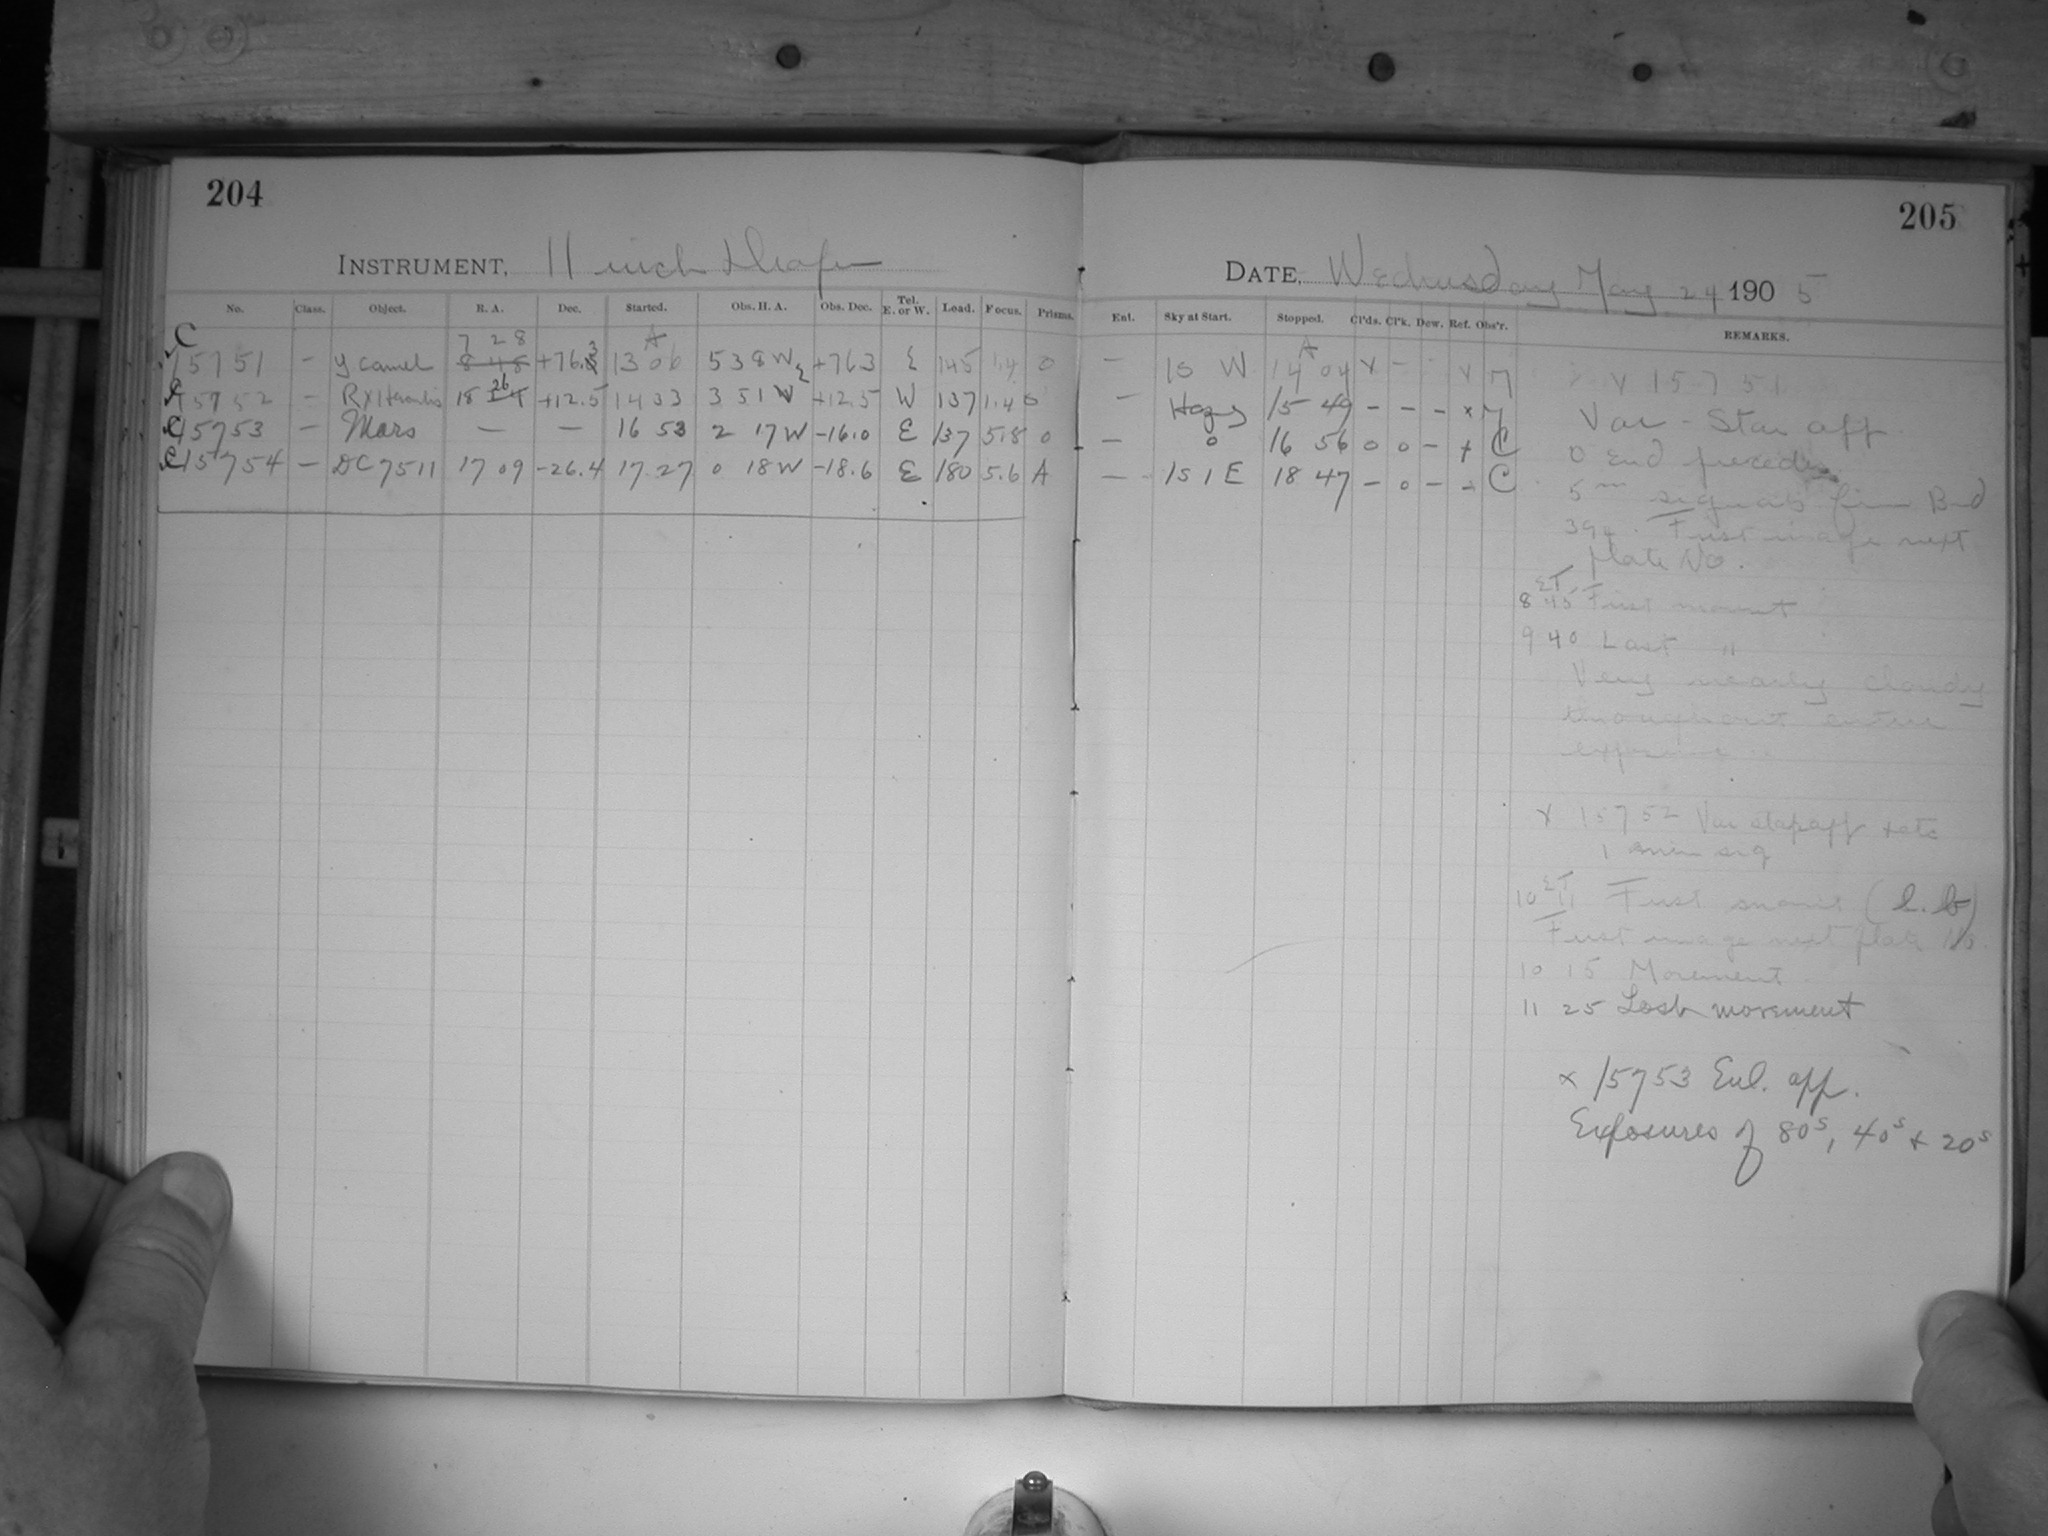 204
205
INSTRUMENT, 11 inch Draper
DATE, Wednesday May 24 1905
No. Class. Object. R. A. Dec. Started. Obs. H. A. Obs. Dec. Tel. E. or W. Load. Focus. Prisms.
Enl. Sky at Start. Stopped. Cl'ds. Cl'k. Dew. Ref. Obs'r. REMARKS.
C 7 28 A
15751 – Y Camel 8 48 +76.3 13 06 5 38 W +763 E 145 1.4 0
A
– 1s W 14 04 x – x M
C 15752 – RX Herculis 18 26 +12.5 14 33 3 51 W +12.5 W 137 1.4 0
– Hazy 15 49 – – – x M
C 15753 – Mars — — 16 53 2 17 W -16.0 E 137 5.8 0
– 0 16 56 0 0 – x C
C 15754 – DC 7511 17 09 -26.4 17 27 0 18 W -18.6 E 180 5.6 A
— 1s 1 E 18 47 – 0 – – C
x 15751
Var – Star app
0 End precedes
5m signals from Bond
394. First image next
plate No.
ST
8 45 First movement
9 40 Last "
Very nearly cloudy
throughout entire
exposure
x 15752 Var star app + etc
1 min sig
ST
10 11 First
First image next plate No.
10 15 Movement
11 25 Last movement
x 15753 Enl. app.
Exposures of 80s, 40s + 20s